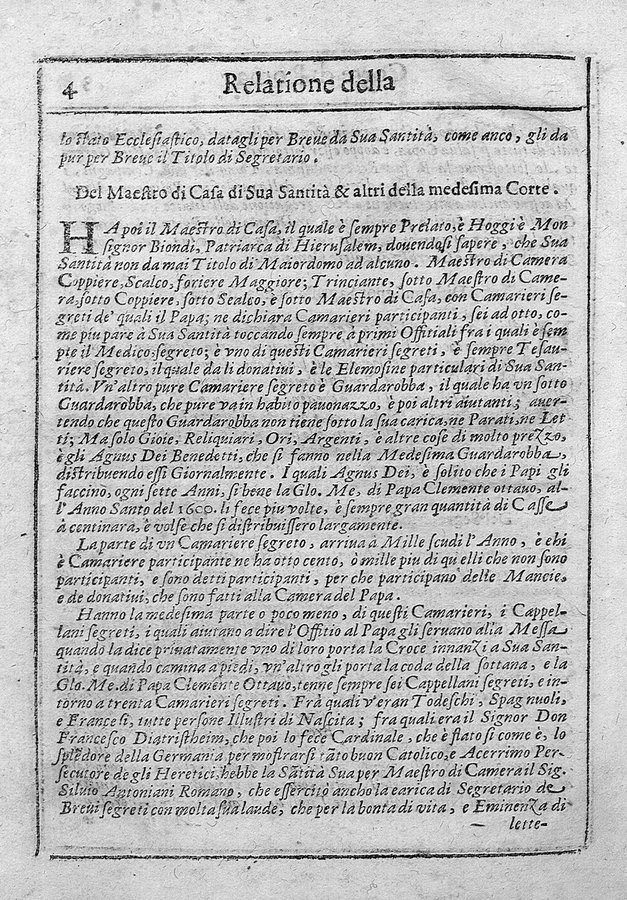 4 Relatione della
lo stato Ecclesiastico, datagli per Breue da Sua Santità, come anco, gli da
pur per Breue il Titolo di Segretario.
Del Maestro di Casa di Sua Santità & altri della medesima Corte.
HA poi il Maestro di Casa, il quale è sempre Prelato, è Hoggi è Mon
signor Biondi, Patriarca di Hierusalem, douendosi sapere, che Sua
Santità non da mai Titolo di Maiordomo ad alcuno. Maestro di Camera
Coppiere, Scalco, foriere Maggiore; Trinciante, sotto Maestro di Came-
ra, sotto Coppiere, sotto Scalco, è sotto Maestro di Casa, con Camarieri se-
greti de' quali il Papa; ne dichiara Camarieri participanti, sei ad otto, co-
me piu pare à Sua Santità toccando sempre à primi Offitiali fra i quali è sem
pre il Medico segreto; è vno di questi Camarieri segreti, è sempre Tesau-
riere segreto, il quale da li donatiui, è le Elemosine particulari di Sua San-
tità. Vn'altro pure Camariere segreto è Guardarobba, il quale ha vn sotto
Guardarobba, che pure va in habito pauonazzo, è poi altri aiutanti; auer-
tendo che questo Guardarobba non tiene sotto la sua carica, ne Parati, ne Let
ti; Ma solo Gioie, Reliquiari, Ori, Argenti, è altre cose di molto prezzo,
è gli Agnus Dei Benedetti, che si fanno nella Medesima Guardarobba,
distribuendo essi Giornalmente. I quali Agnus Dei, è solito che i Papi gli
faccino, ogni sette Anni, si bene la Glo. Me, di Papa Clemente ottauo, al-
l'Anno Santo del 1600. li fece piu volte, è sempre gran quantità di Casse
à centinara, è volse che si distribuissero largamente.
La parte di vn Camariere segreto, arriua à Mille scudi l'Anno, è chi
è Camariere participante ne ha otto cento, ò mille piu di quelli che non sono
participanti, e sono detti participanti, per che participano delle Mancie,
e de donatiui, che sono fatti alla Camera del Papa.
Hanno la medesima parte o poco meno, di questi Camarieri, i Cappel-
lani segreti, i quali aiutano a dire l'Offitio al Papa gli seruano alla Messa
quando la dice priuatamente vno di loro porta la Croce innanzi a Sua San-
tità, e quando camina a piedi, vn'altro gli porta la coda della sottana, e la
Glo. Me. di Papa Clemente Ottauo, tenne sempre sei Cappellani segreti, e in-
torno a trenta Camarieri segreti. Frà quali v'eran Todeschi, Spagnuoli,
e Francesi, tutte persone Illustri di Nascita; fra quali era il Signor Don
Francesco Diatristheim, che poi lo fece Cardinale, che è stato si come è, lo
splēdore della Germania per mostrarsi tāto buon Catolico, e Acerrimo Per-
secutore de gli Heretici, hebbe la Sātità Sua per Maestro di Camera il Sig.
Siluio Antoniani Romano, che essercitò ancho la carica di Segretario de
Breui segreti con molta sua laude; che per la bonta di vita, e Eminenza di
lette-